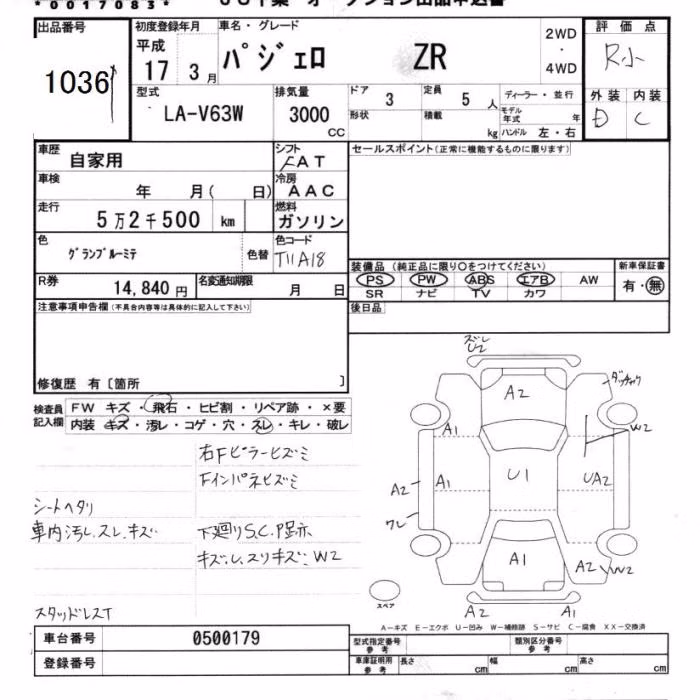 *0017083*
出品番号
1036
初度登録年月
平成
17 3月
車名・グレード
パジェロ ZR
2WD
・
4WD
評価点
R小
外装 内装
D C
型式
LA-V63W
排気量
3000
CC
ドア
3
定員
5 人
ディーラー・並行
形状
積載
kg
モデル年式 年
ハンドル 左・右
車歴
自家用
シフト
FAT
車検
年 月( 日)
冷房
AAC
走行
5万2千500 km
燃料
ガソリン
色
グランブルーミテ
色替
色コード
T11A18
R券
14,840 円
名変通知期限
月 日
セールスポイント(正常に機能するものに限ります)
装備品 (純正品に限り〇をつけてください)
PS PW ABS エアB AW
SR ナビ TV カワ
新車保証書
有・無
後日品
注意事項申告欄(不具合内容等は具体的に記入して下さい)
修復歴 有〔箇所 〕
検査員
記入欄
FW キズ・飛石・ヒビ割・リペア跡・×要
内装 キズ・汚レ・コゲ・穴・スレ・キレ・破レ
右Fピラーヒズミ
Fインパネヒズミ
シートヘタリ
車内汚レ.スレ.キズ
下廻りS.C.P跡
キズ.レ.スリキズ.W2
スタッドレスT
ズレ
U2
A2
A1
W2
A2
A1
U1
UA2
ワレ
A1
A2
W2
スペア
A2
A1
A-キズ E-エクボ U-凹み W-補修跡 S-サビ C-腐食 XX-交換済
車台番号
0500179
登録番号
型式指定番号
参考
類別区分番号
参考
車庫証明用
参考
長さ cm
幅 cm
高さ cm